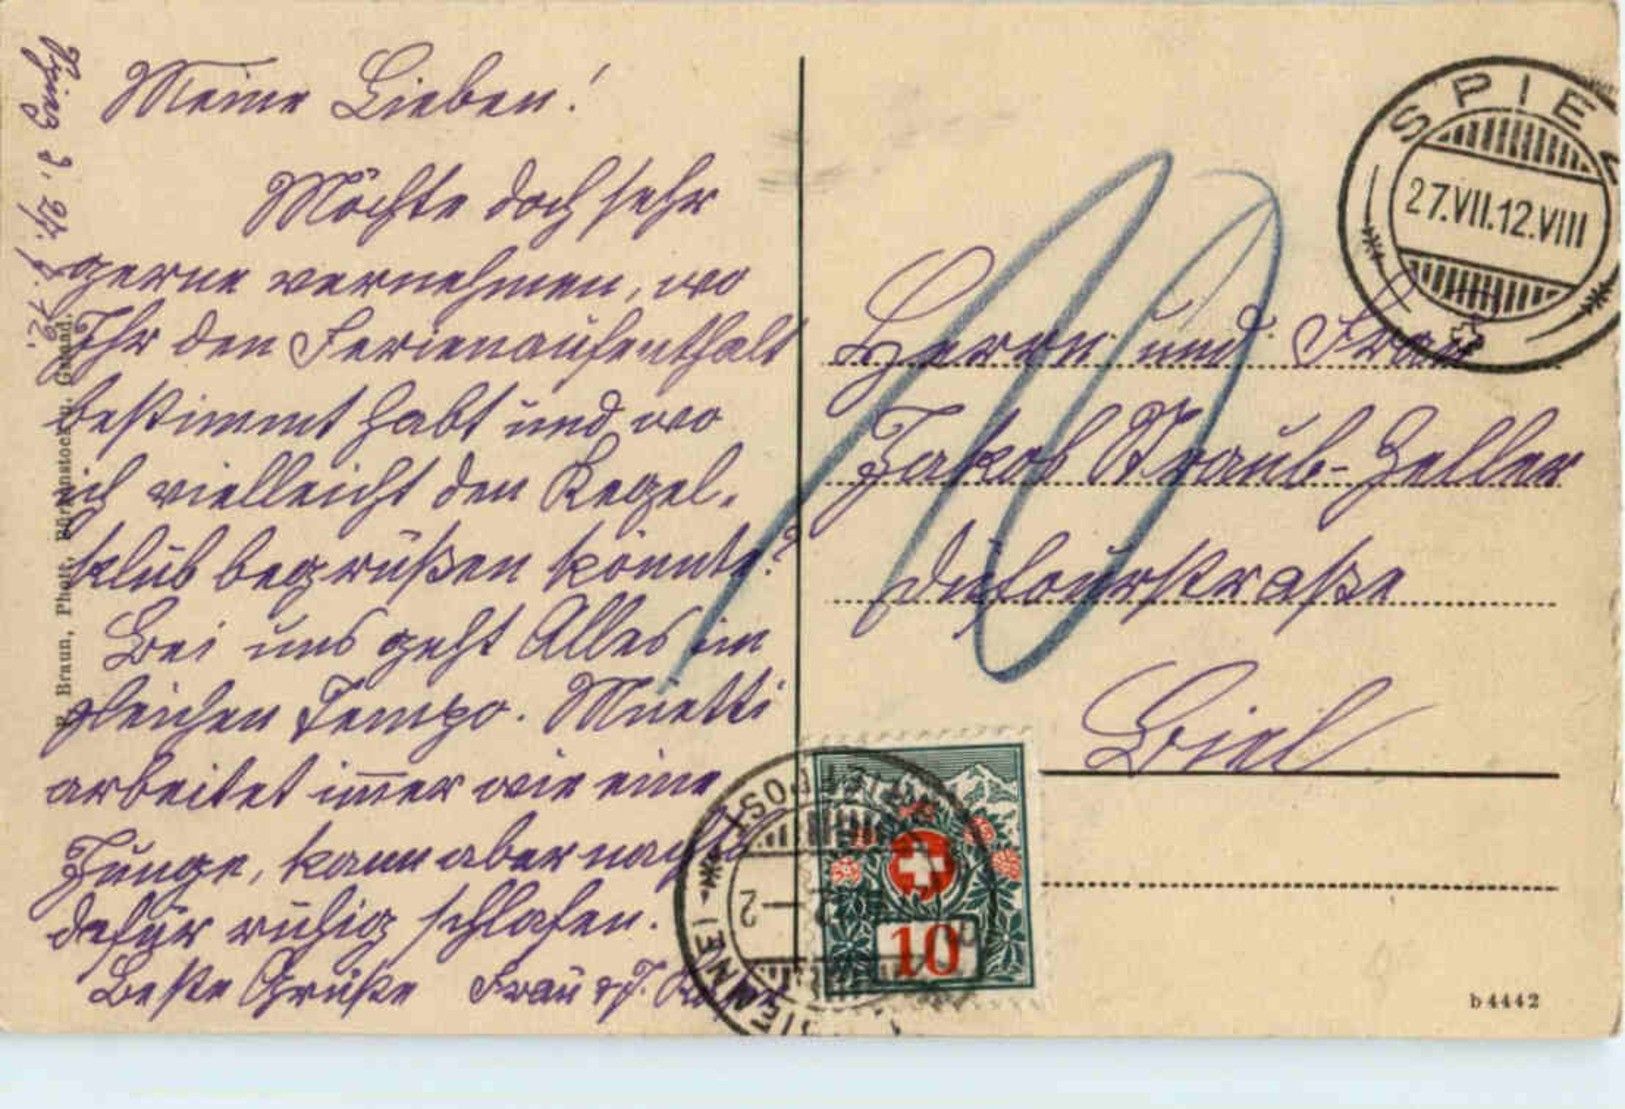 Spiez d. 27. 7. 12.
Meine Lieben!
Möchte doch sehr
gerne vernehmen, wo
Ihr den Ferienaufenthalt
bestimmt habt und wo
ich vielleicht den Kegel-
klub begrüßen könnte?
Bei uns geht Alles im
gleichen Tempo. Muetti
arbeitet immer wie eine
Junge, kann aber nachts
dafür ruhig schlafen.
Beste Grüße Frau & J.
R. Braun, Phot., Bürkenstock u. Gmünd.
10
SPIEZ
27.VII.12.VIII
Herrn und Frau
Jakob Straub-Zeller
Dufourstraße
Biel
10
BIENNE 1
BRIEFPOST
b 4442